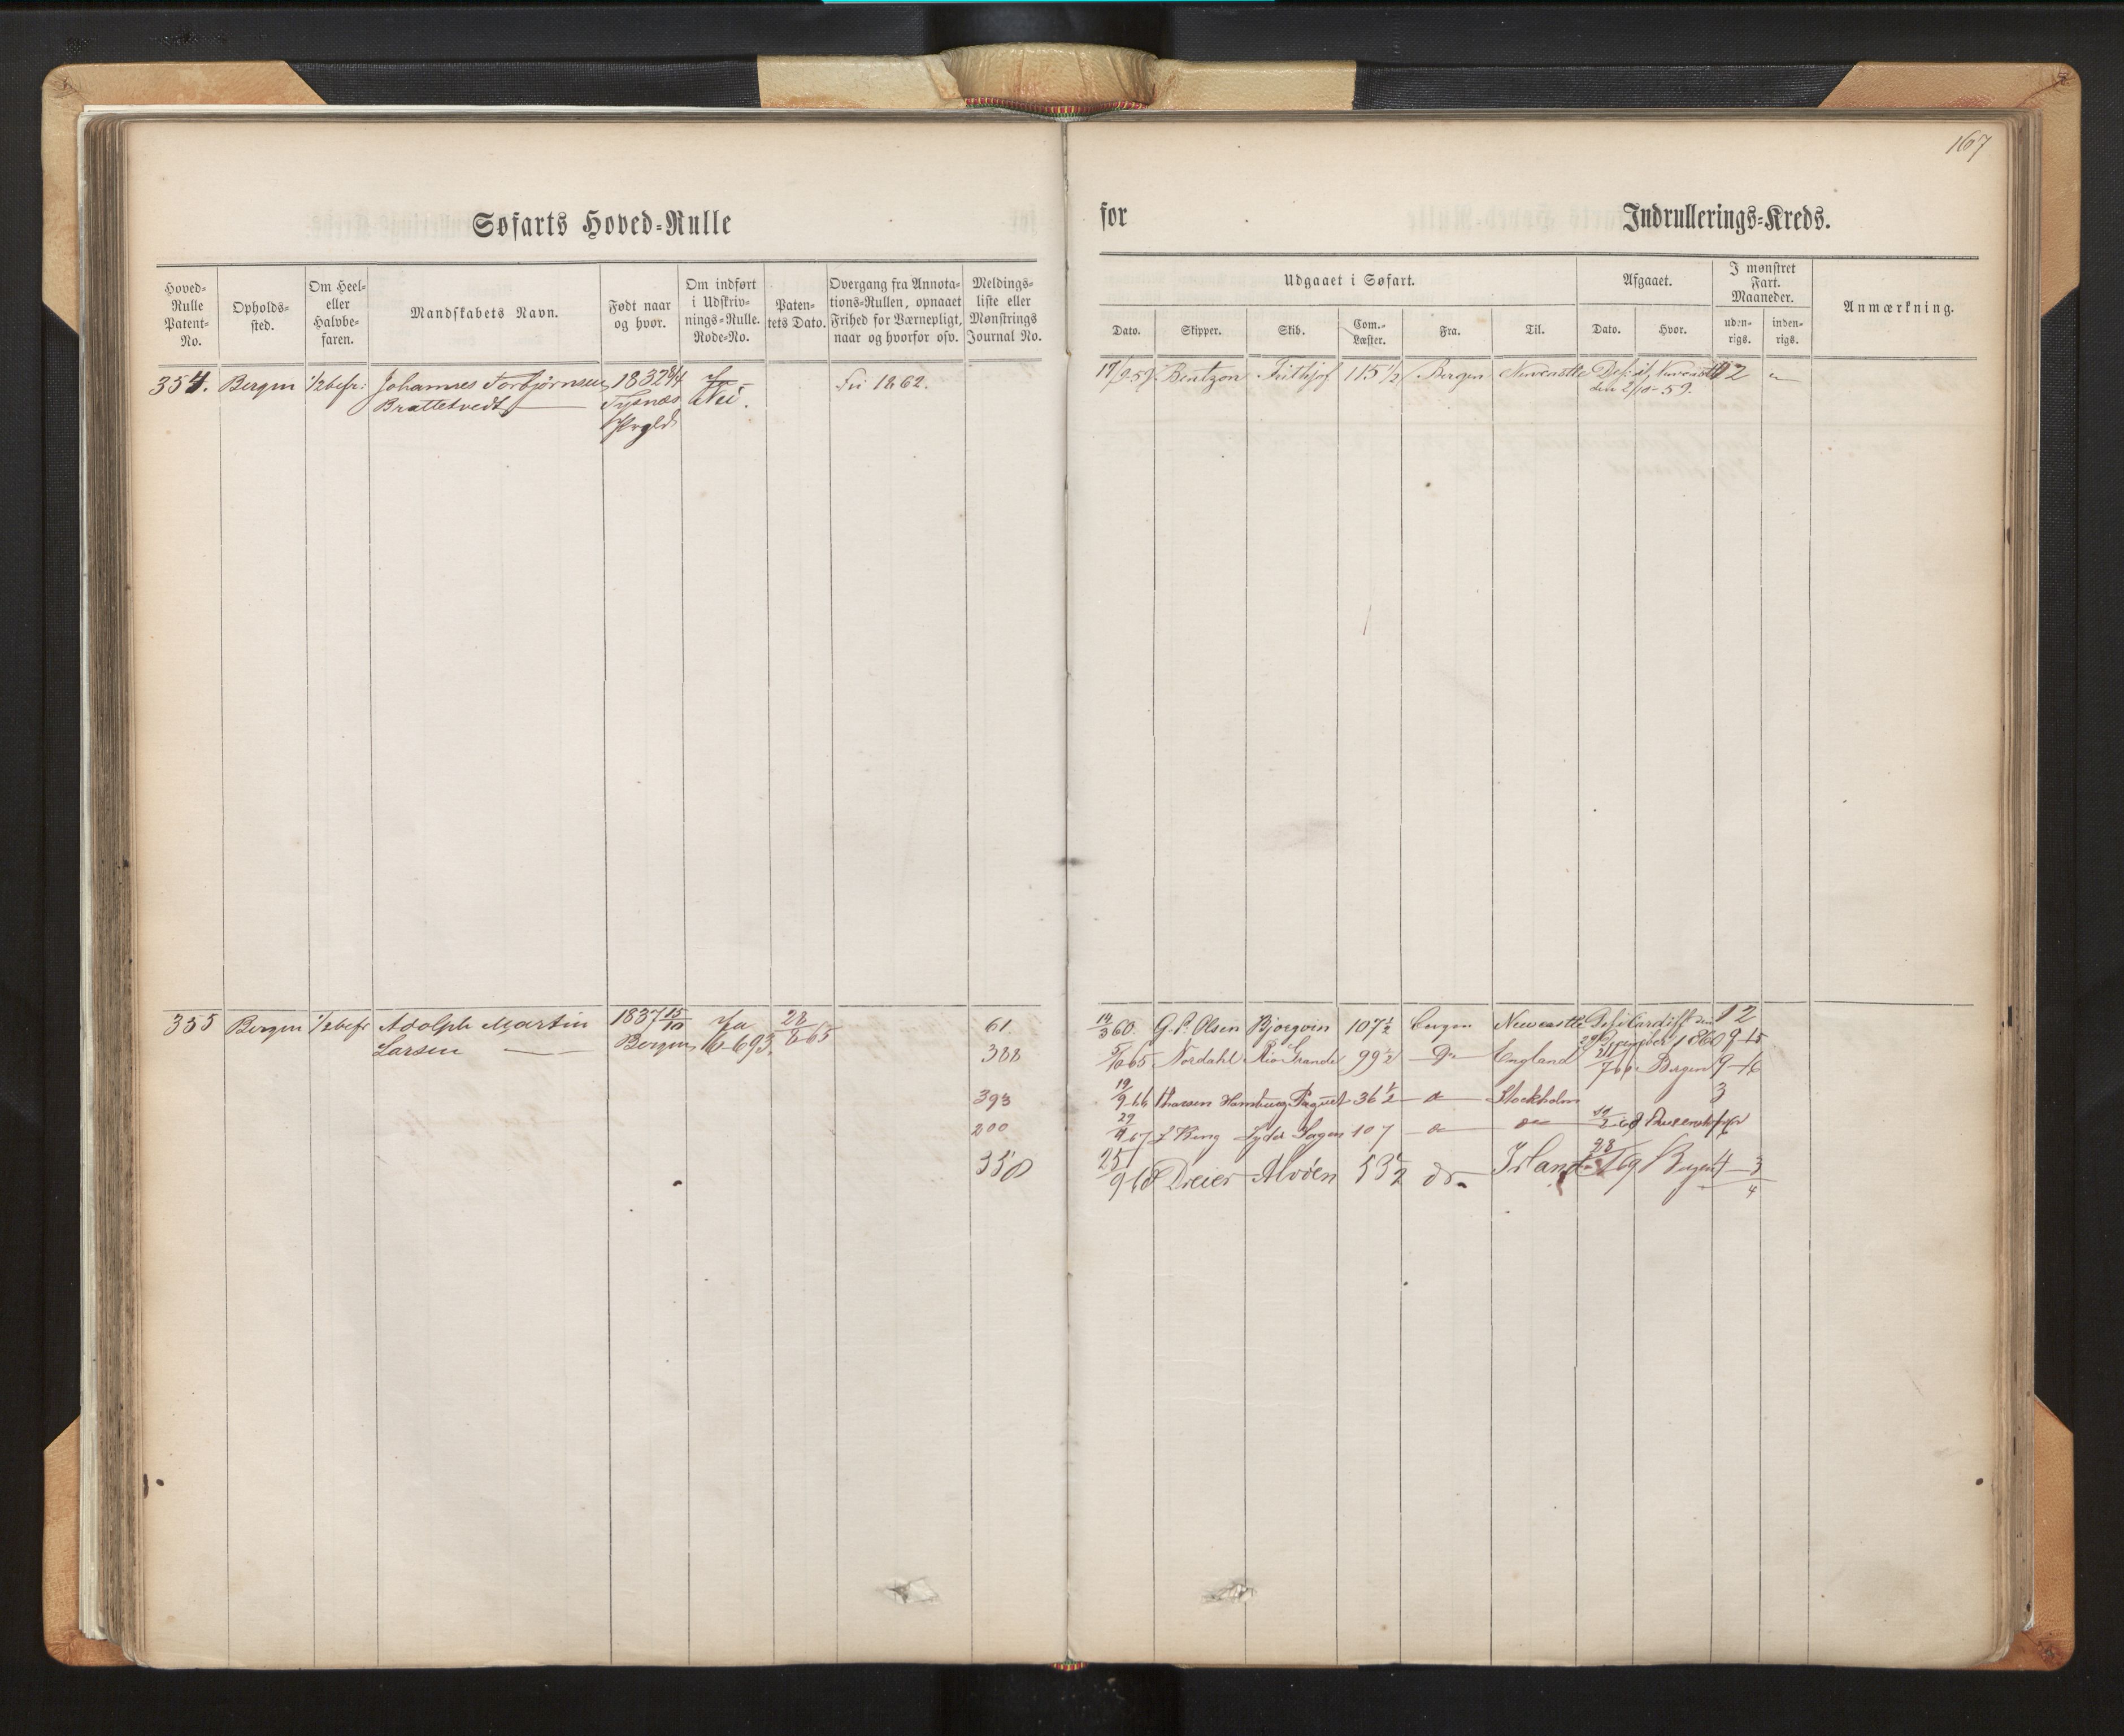 167
Søfarts Hoved-Rulle
for Indrullerings-Kreds.
Hoved-Rulle Patent-No.
Opholds-sted.
Om Heel- eller Halvbe-faren.
Mandskabets Navn.
Født naar og hvor.
Om indført i Udskriv-nings-Rulle. Rode-No.
Paten-tets Dato.
Overgang fra Annota-tions-Rullen, opnaaet Frihed for Værnepligt, naar og hvorfor osv.
Meldings-liste eller Mønstrings Journal No.
Udgaaet i Søfart.
Dato. Skipper. Skib. Com.-Læster. Fra. Til.
Afgaaet.
Dato. Hvor.
I mønstret Fart. Maaneder.
uden-rigs. inden-rigs.
Anmærkning.
354. Bergen 1/2befr: Johannes Torbjørnsen 1832 Ja Fri 1862. 17/9-59. Bentzon Frithjof 115 1/2 Bergen Newcastle Des: i Newcastle 12
Brattetvedt Tysnæs Nei. den 2/10-59.
Prgld
355 Bergen 1/2befr Adolph Martin 1837 15/10 Ja 28/8 65 61. 14/3 60. G. P. Olsen Bjørgvin 107 1/2 Bergen Newcastle Des i Cardiff den 12
Larsen Bergen 6-693.
388 5/10 65 Nordahl Rio Grande 99 1/2 Do England Bergen 9-16
393 19/9-66 Thorsen Hamburg Paquet 36 1/2 do Stockholm 3
200 29/4 67 L Berg Lyder Sagen 107 do do
358 25/9 68 Dreier Alvøen 53 1/2 do Irland 28 69 Bergen 4 3
4